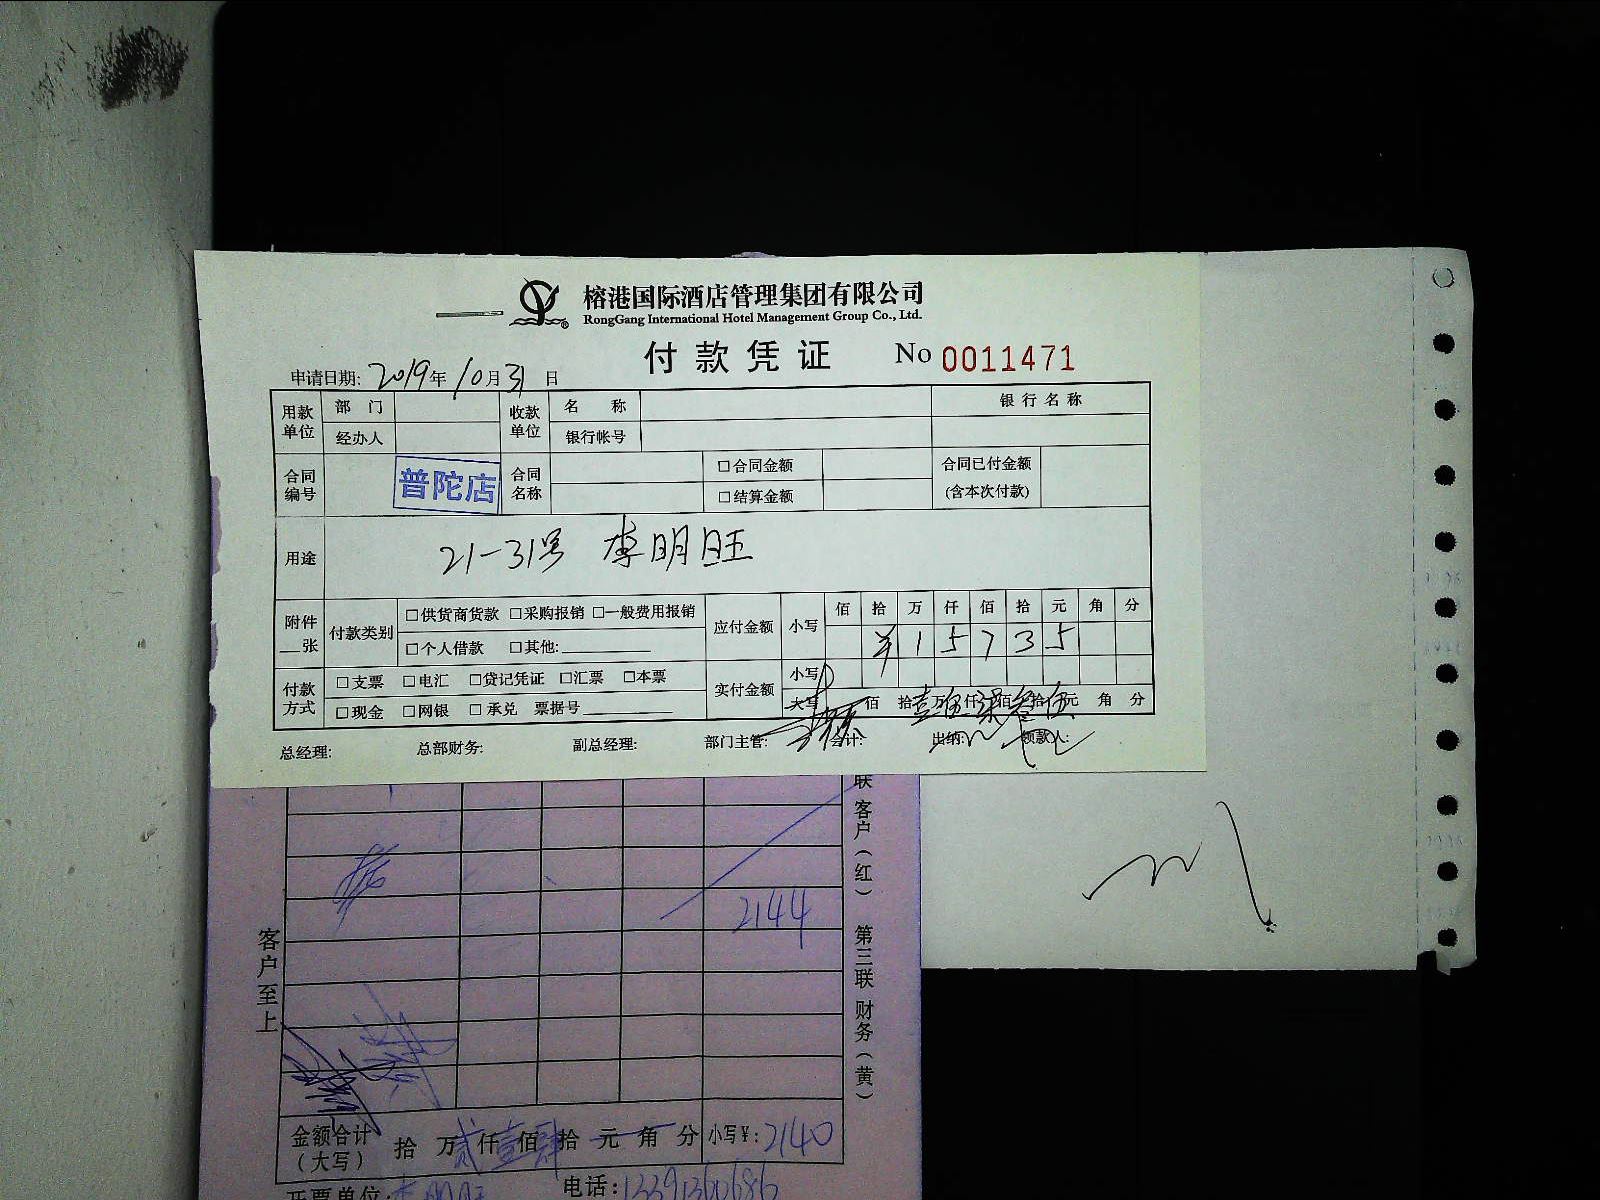 榕港国际酒店管理集团有限公司
RongGang International Hotel Management Group Co., Ltd.
付款凭证 No 0011471
申请日期: 2019年10月31日
用款单位 部门 收款单位 名称 银行名称
经办人 银行帐号
合同编号 普陀店 合同名称 □合同金额 合同已付金额
□结算金额 (含本次付款)
用途 21-31号 李明旺
附件__张 付款类别 □供货商货款 □采购报销 □一般费用报销 应付金额 小写 佰 拾 万 仟 佰 拾 元 角 分
□个人借款 □其他: ¥ 1 5 7 3 5
付款方式 □支票 □电汇 □贷记凭证 □汇票 □本票 实付金额 小写
□现金 □网银 □承兑 票据号 大写 佰 拾壹万伍仟柒佰叁拾伍元 角 分
总经理: 总部财务: 副总经理: 部门主管: 会计: 出纳: 领款人:
联 客户(红) 第三联 财务(黄)
客户至上
2144
金额合计(大写) 拾 万贰仟壹佰肆拾 元 角 分 小写¥: 2140
开票单位: 李明旺 电话: 13391360686